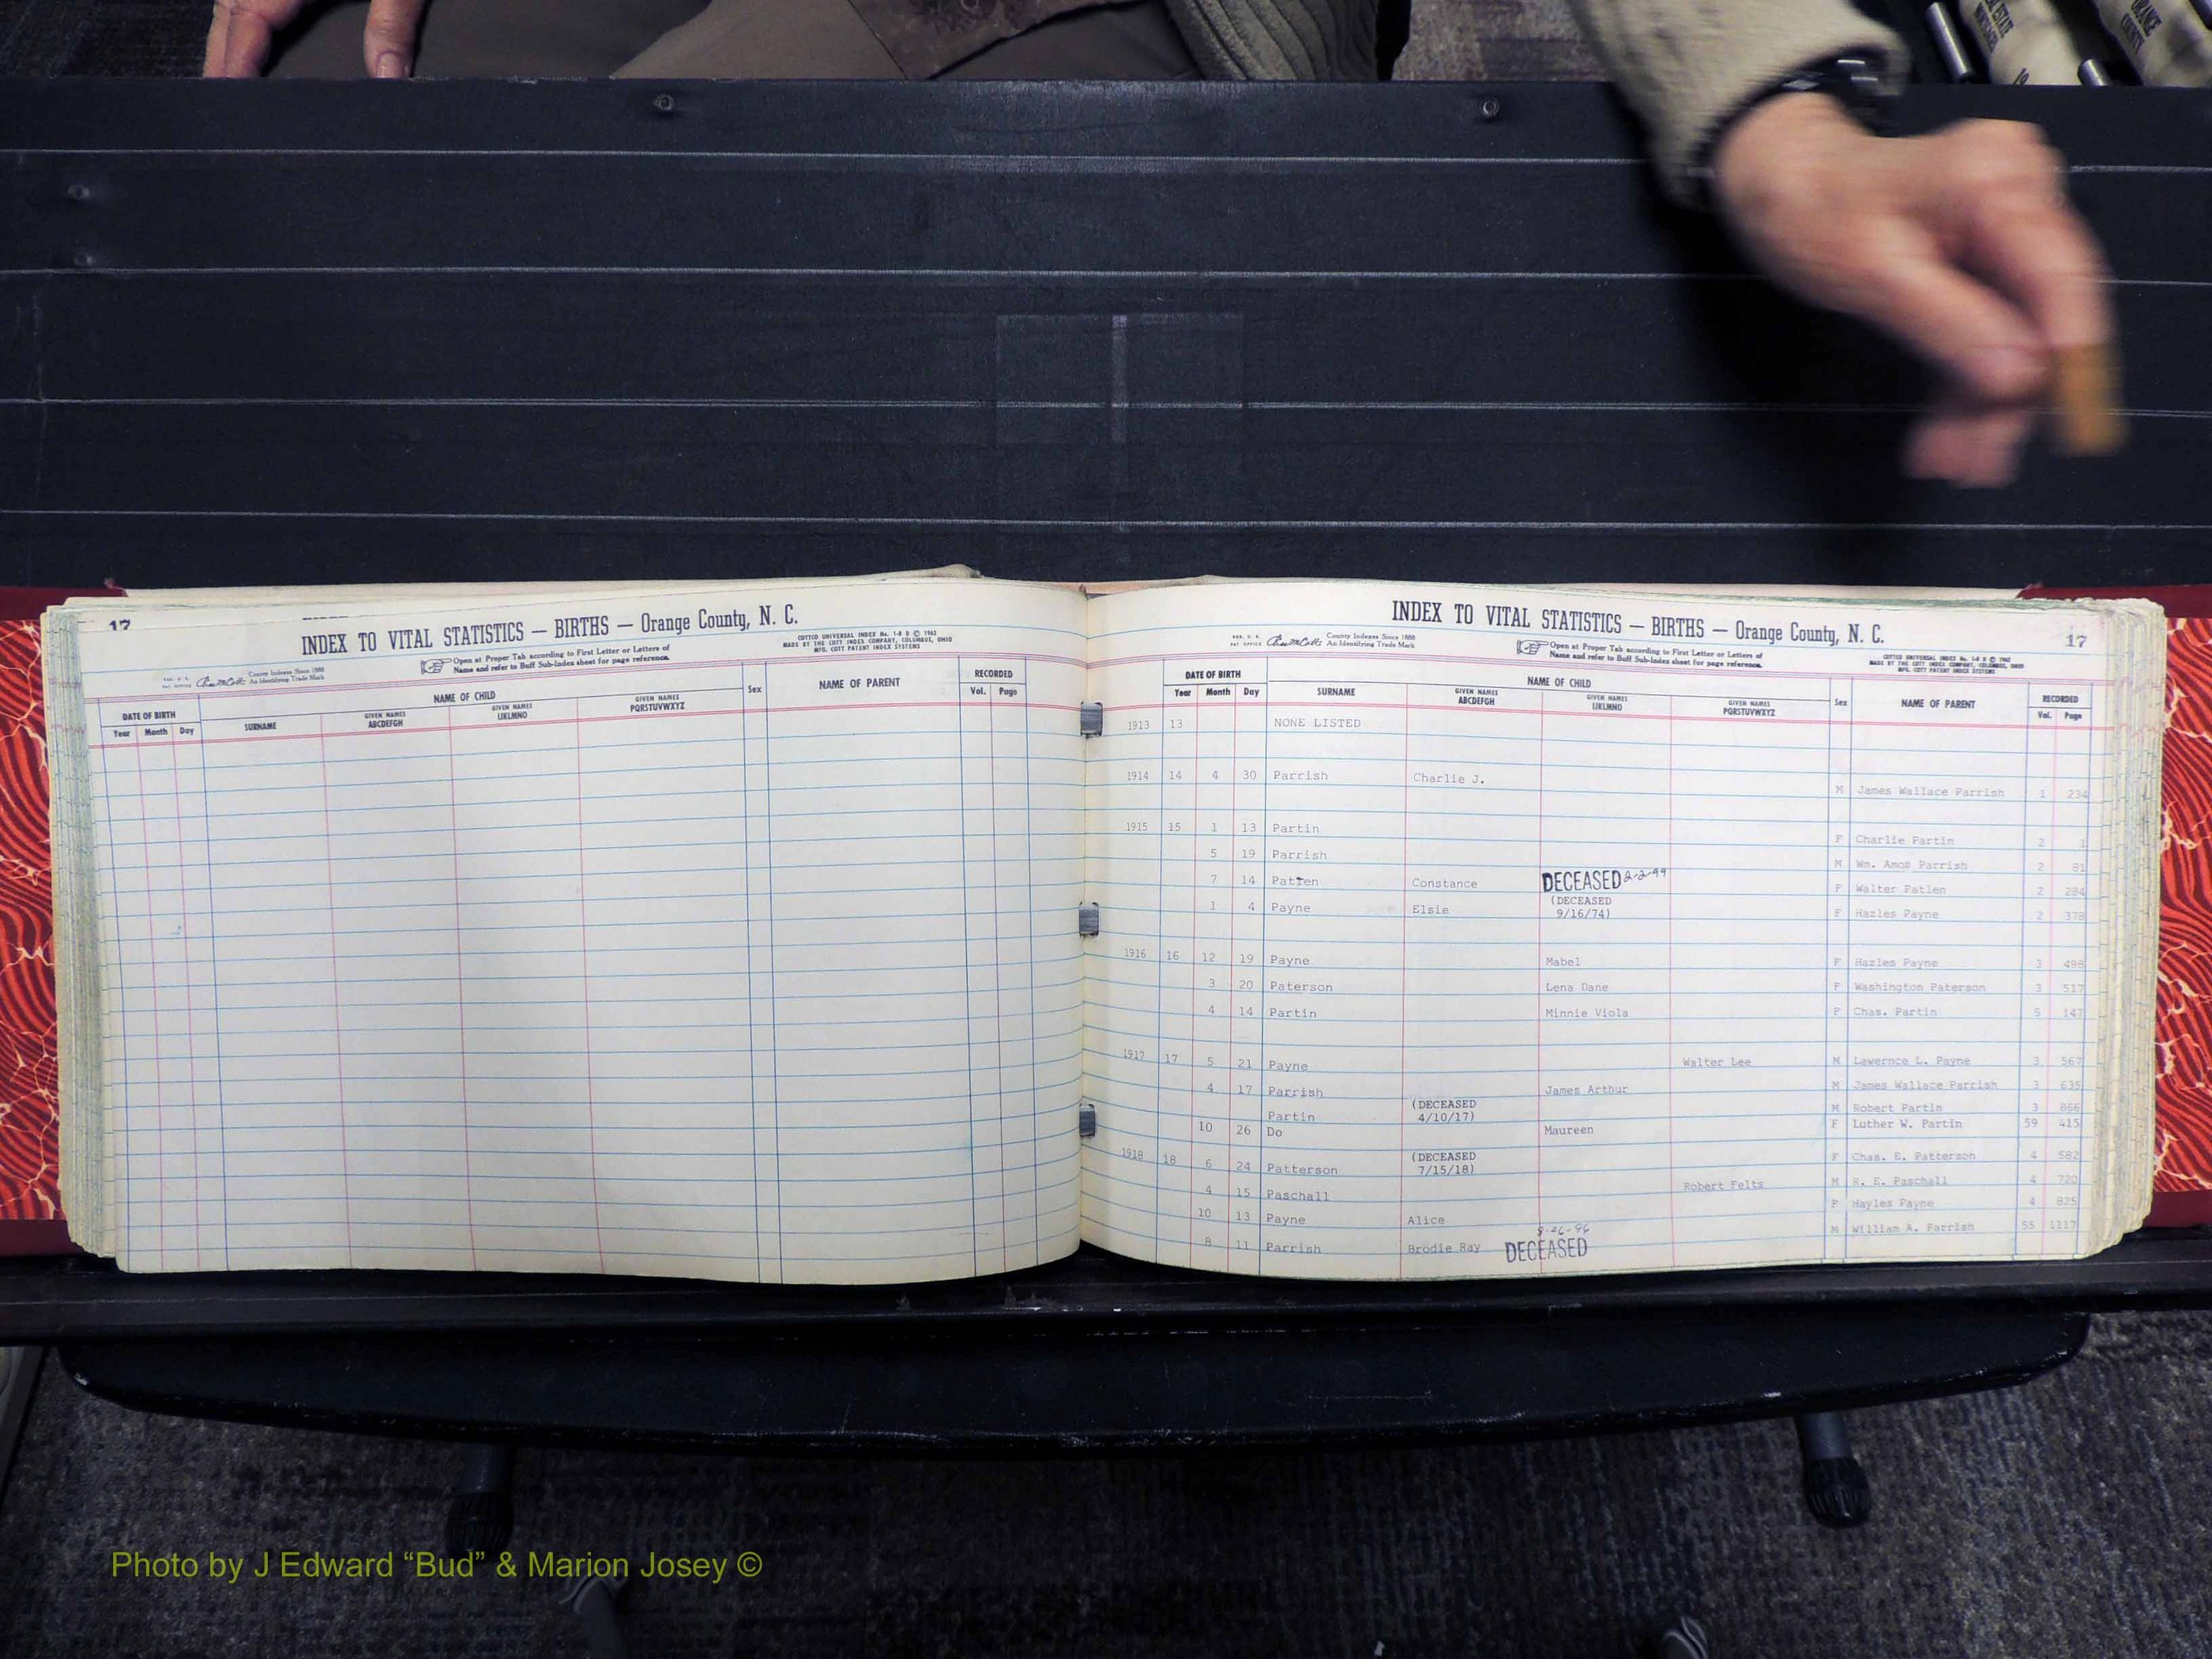 STATE
19
ORANGE
COUNTY
17
INDEX TO VITAL STATISTICS — BIRTHS — Orange County, N. C.
County Indexes Since 1888
An Identifying Trade Mark
Open at Proper Tab according to First Letter or Letters of
Name and refer to Buff Sub-Index sheet for page reference.
COTTCO UNIVERSAL INDEX No. 1-8 D © 1962
MADE BY THE COTT INDEX COMPANY, COLUMBUS, OHIO
MFG. COTT PATENT INDEX SYSTEMS
DATE OF BIRTH NAME OF CHILD Sex NAME OF PARENT RECORDED
Year Month Day SURNAME GIVEN NAMES ABCDEFGH GIVEN NAMES IJKLMNO GIVEN NAMES PQRSTUVWXYZ Vol. Page
INDEX TO VITAL STATISTICS — BIRTHS — Orange County, N. C.
17
County Indexes Since 1888
An Identifying Trade Mark
Open at Proper Tab according to First Letter or Letters of
Name and refer to Buff Sub-Index sheet for page reference.
COTTCO UNIVERSAL INDEX No. 1-8 D © 1962
MADE BY THE COTT INDEX COMPANY, COLUMBUS, OHIO
MFG. COTT PATENT INDEX SYSTEMS
DATE OF BIRTH NAME OF CHILD Sex NAME OF PARENT RECORDED
Year Month Day SURNAME GIVEN NAMES ABCDEFGH GIVEN NAMES IJKLMNO GIVEN NAMES PQRSTUVWXYZ Vol. Page
1913 13 NONE LISTED
1914 14 4 30 Parrish Charlie J. M James Wallace Parrish 1 234
1915 15 1 13 Partin F Charlie Partin 2 1
5 19 Parrish M Wm. Amos Parrish 2 81
7 14 Patten Constance DECEASED 2-2-99 F Walter Patlen 2 284
1 4 Payne Elsie (DECEASED 9/16/74) F Hazles Payne 2 378
1916 16 12 19 Payne Mabel F Hazles Payne 3 498
3 20 Paterson Lena Dane F Washington Paterson 3 517
4 14 Partin Minnie Viola F Chas. Partin 5 147
1917 17 5 21 Payne Walter Lee M Lawernce L. Payne 3 567
4 17 Parrish James Arthur M James Wallace Parrish 3 635
Partin (DECEASED 4/10/17) M Robert Partin 3 866
10 26 Do Maureen F Luther W. Partin 59 415
1918 18 6 24 Patterson (DECEASED 7/15/18) F Chas. E. Patterson 4 582
4 15 Paschall Robert Felts M R. E. Paschall 4 720
10 13 Payne Alice F Hayles Payne 4 825
8 11 Parrish Brodie Ray DECEASED 8-26-96 M William A. Parrish 55 1117
Photo by J Edward “Bud” & Marion Josey ©